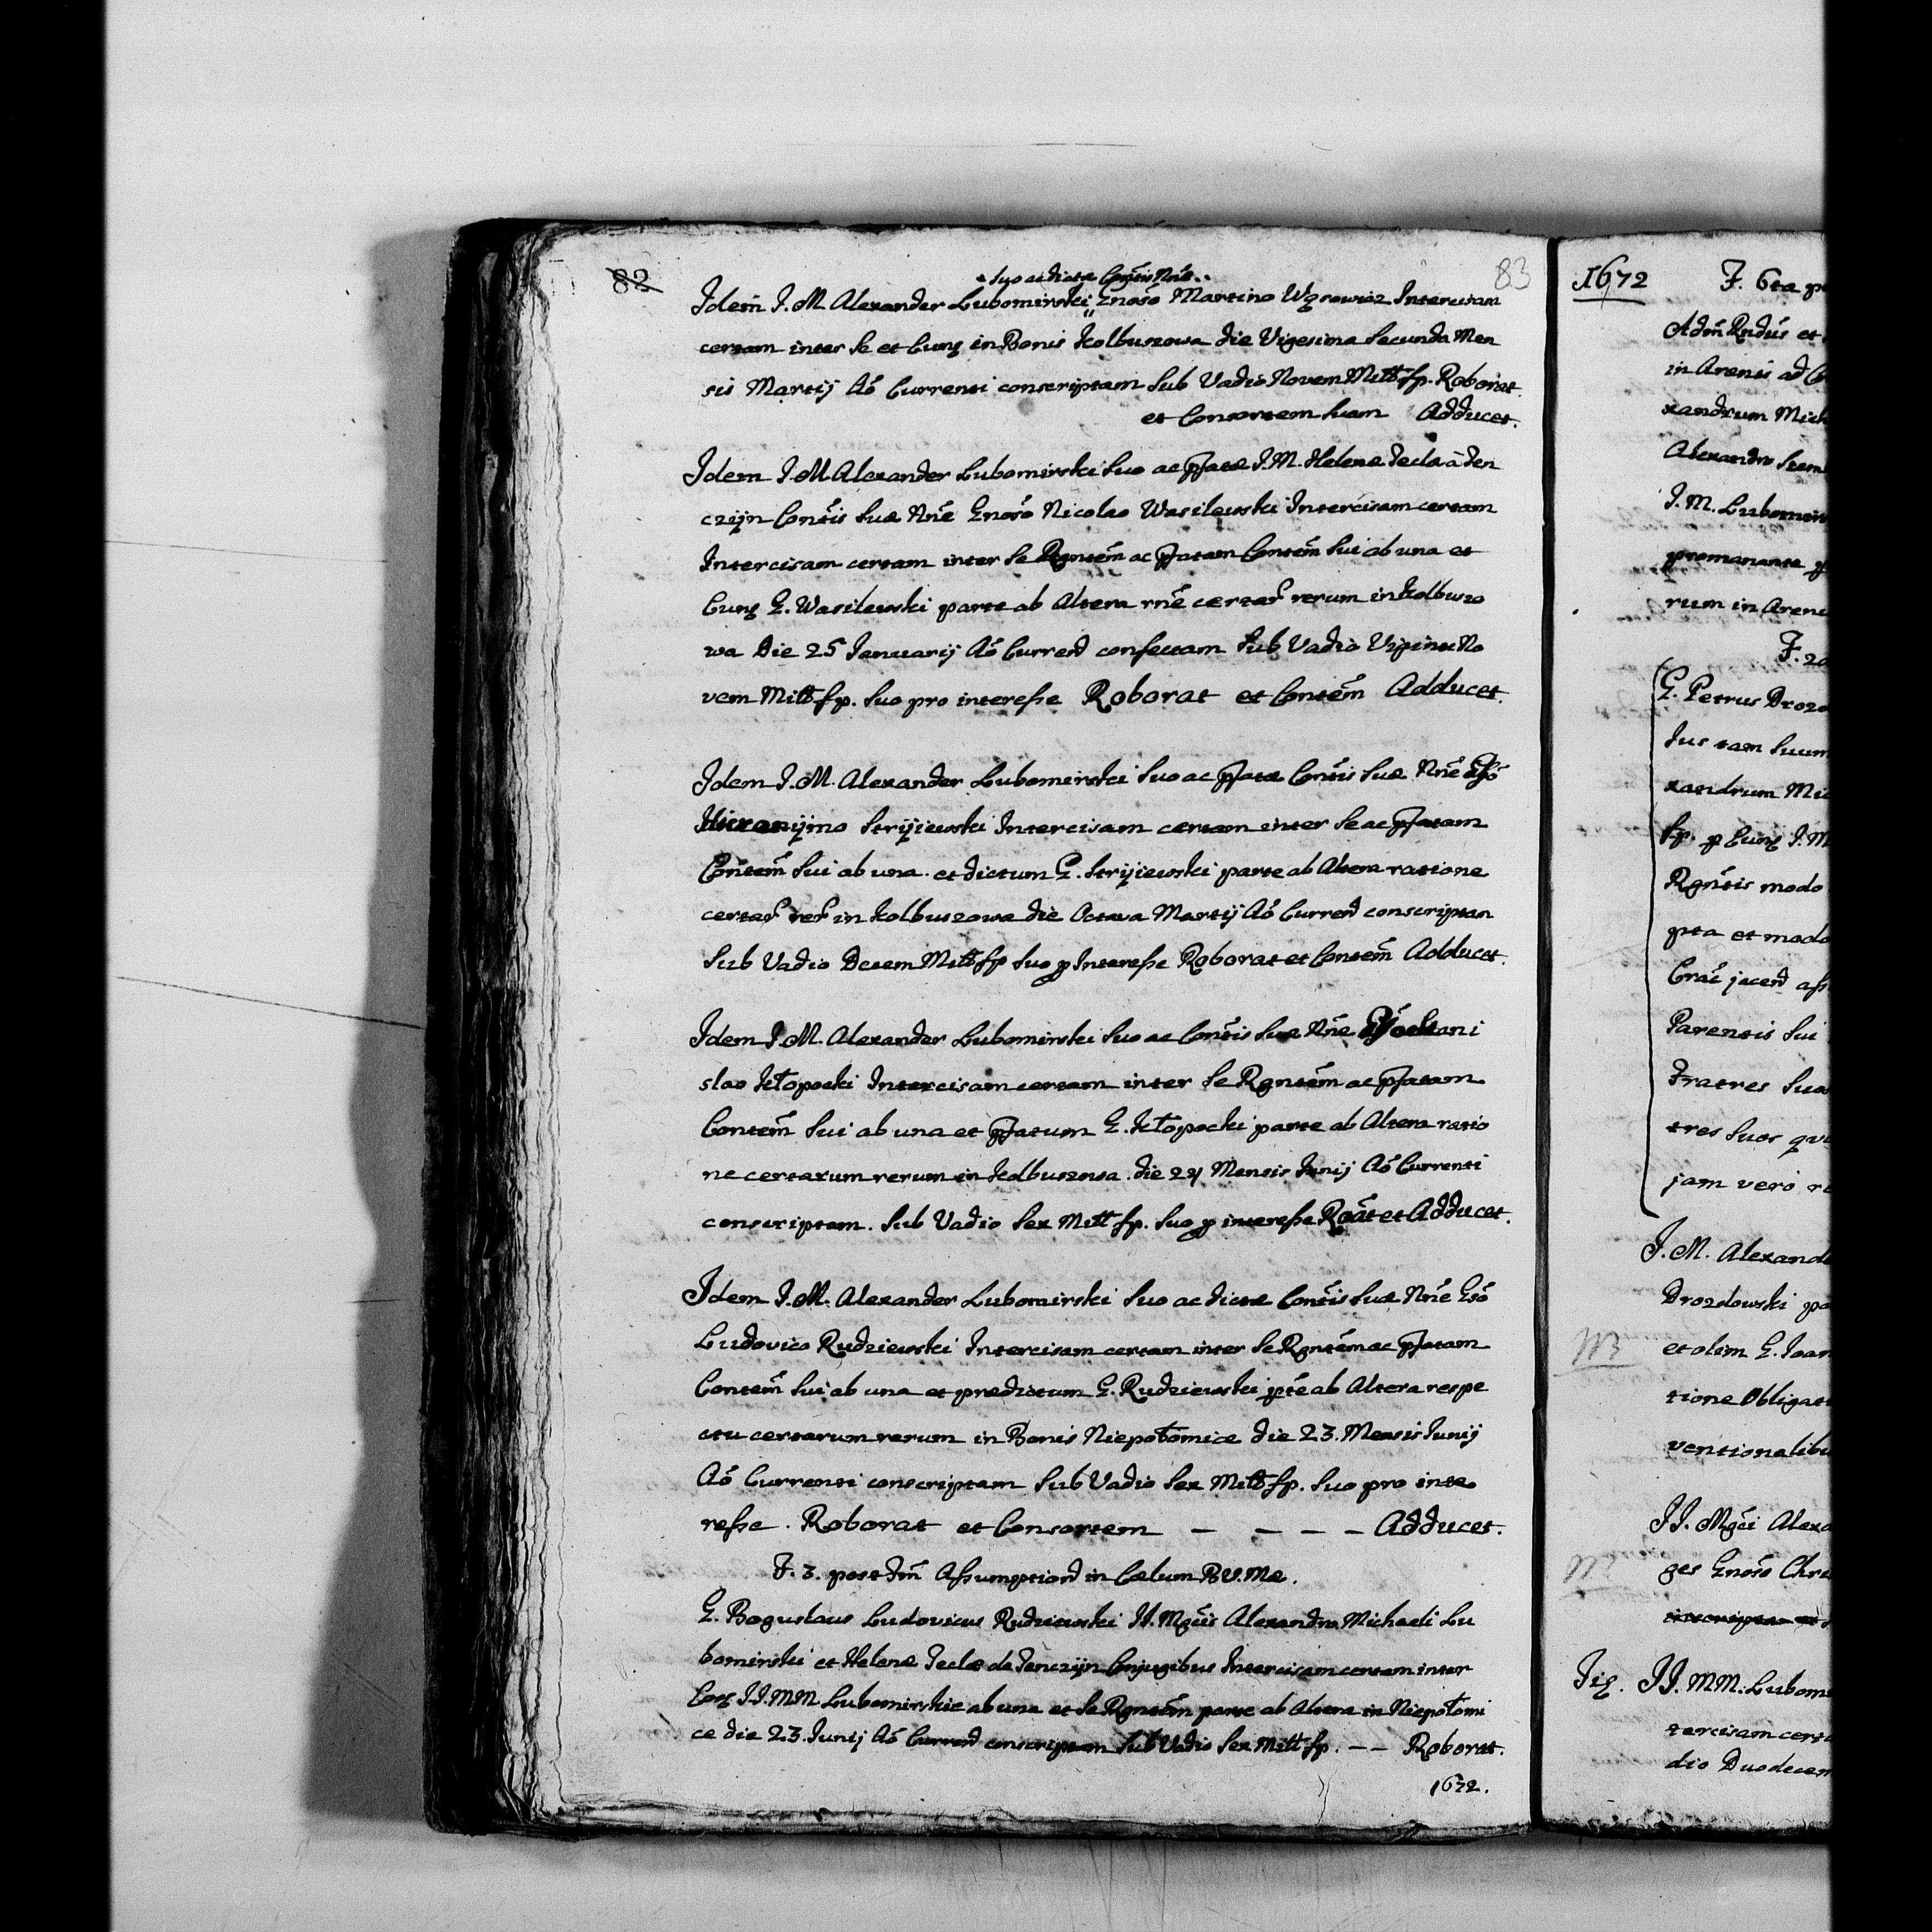 82
83
Suo ac dictæ Contis Nne
Idem I. M. Alexander Lubomirski Gnoso Martino Wąsowicz Intercisam
certam inter Se et Eunq in Bonis Kolbuszowa die Vigesima Secunda Men
sis Martij Aō Currenti conscriptam Sub Vadio Novem Mill fp. Roborat.
et Consortem suam Adducet.
Idem I. M Alexander Lubomirski Suo ac pfatæ I. M. Helenæ Teclæ à Ten
czÿn Contis Suæ Nne Gnoso Nicolao Wasilewski Intercisam certam
Intercisam certam inter Se Rgntem ac pfatam Contem Sui ab una et
Eunq G. Wasilewski parte ab Altera rne certar rerum in Kolbuszo
wa Die 25 Januarij Aō Currend confectam Sub Vadio Viginti No
vem Mill fp. Suo pro interesse Roborat et Contem Adducet.
Idem I. M. Alexander Lubomirski Suo ac pfatæ Contis Suæ Nne Gso
Hieronÿmo Strÿiewski Intercisam certam inter Se ac pfatam
Contem Sui ab una et dictum G. Strÿiewski parte ab Altera ratione
certar rer in Kolbuszowa die Octava Martij Aō Currend conscriptam
Sub Vadio Decem Mill fp Suo p Interesse Roborat et Contem Adducet.
Idem I. M. Alexander Lubomirski Suo ac Contis Suæ Nne
slao Kłopocki Intercisam certam inter Se Rgntem ac pfatam
Contem Sui ab una et pfatum G. Kłopocki parte ab Altera ratio
ne certarum rerum in Kolbuszowa die Mensis Junij Aō Currenti
conscriptam. Sub Vadio Sex Mill fp. Suo p interesse Roat et Adducet.
Idem I. M. Alexander Lubomirski Suo ac dictæ Contis Suæ Nne Gso
Ludovico Rudziewski Intercisam certam inter Se Rgntem ac pfatam
Contem Sui ab una et predictum G. Rudziewski pte ab Altera respe
ctu certarum rerum in Bonis Niepołomice die 23. Mensis Junij
Aō Currenti conscriptam Sub Vadio Sex Mill fp. Suo pro inte
resse. Roborat et Consortem — — — — Adducet.
F. 3. post Fm Assumptiond in Cælum B.V. Mæ.
G. Boguslaus Ludovicus Rudziewski II. Mgcis Alexandro Michaeli Lu
bomirski et Helenæ Teclæ de Tenczÿn Conjugibus Intercisam certam inter
Eosq II. MM Lubomirskie ab una et Se Rgntem parte ab Altera in Niepołomi
ce die 23. Junij Aō Currend conscriptam Sub Vadio Sex Mill fp. — — Roborat.
1672.
1672 F. 6ta
Adm Rndus et
in Arenis ad
xandrum Mich
Alexandro
I. M. Lubomir
promanante
rum in Aren
F.
G. Petrus Drozd
Jus tam Suum
xandrum Mic
fp. p Eunq I. M
Rgntis modo
pta et modo
Crac jacend
Parentis Sui
Fratres Suos
tres Suos
jam vero
I. M. Alexand
Drozdowski
et olim G. Joan
tione Obligat
ventionalibu
II. Mgci Alexa
ges Gnoso Chr
inscriptam
II. MM. Lubom
tercisam cert
dio Duodecem